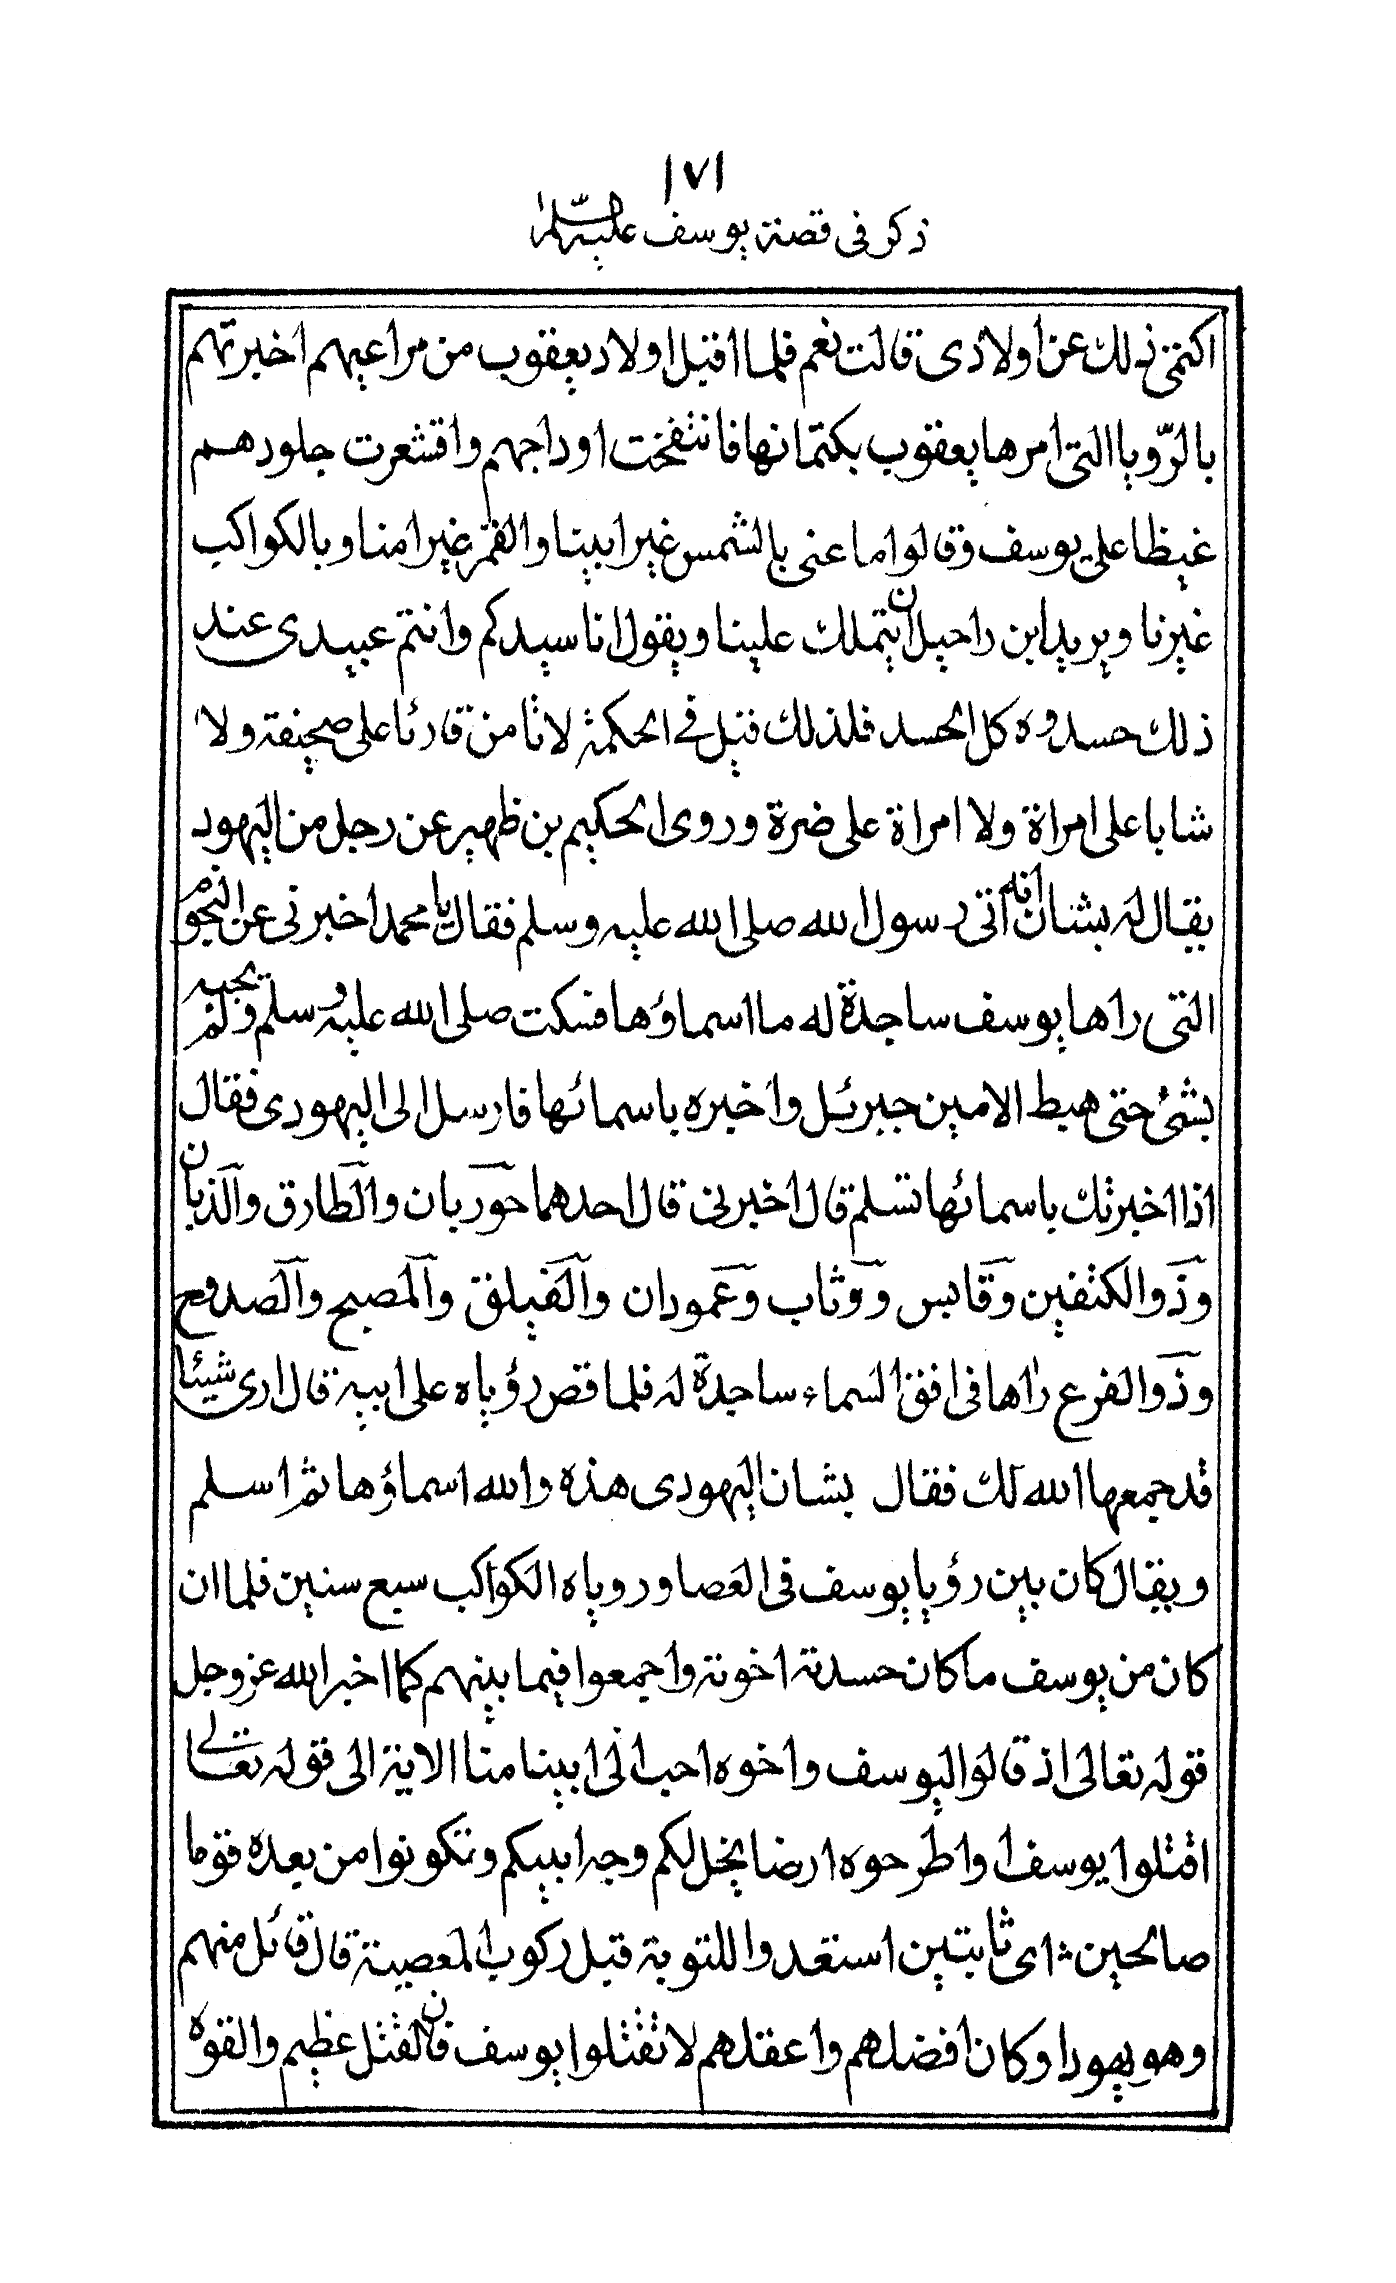 ١٧١
ذكر في قصة يوسف عليه السلام
اكتمي ذلك عن اولادى قالت نعم فلما اقبل اولاد يعقوب من مراعيهم اخبرتهم
بالرّويا التى امرها يعقوب بكتمانها فانتفخت اوداجهم واقشعرت جلودهم
غيظا على يوسف وقالوا ما عنى بالشمس غير ابينا والقمر غير امنا وبالكواكب
غيرنا ويريد ابن راحيل ان يتملك علينا ويقول انا سيدكم وانتم عبيدى عند
ذلك حسدوه كل الحسد فلذلك قيل في الحكمة لا تامن قارئا على صحيفة ولا
شابا على امراة ولا امراة على ضرة وروى الحكيم بن ظهير عن رجل من اليهود
يقال له بشنان انه اتى رسول الله صلى الله عليه وسلم فقال يا محمد اخبرنى عن النجوم
التى راها يوسف ساجدة له ما اسماؤها فسكت صلى الله عليه وسلم ولم يجبه
بشئ حتى هبط الامين جبرئل واخبره باسمائها فارسل الى اليهودى فقال
اذا اخبرتك باسمائها تسلم قال اخبرنى قال احدهما حوريان والطارق والذيان
وذو الكتفين وقابس ووثاب وعمودان والفيلق والمصبح والصدوح
وذو الفرع راها فى افق السماء ساجدة له فلما قص رؤياه على ابيه قال ارى شيئا
قد جمعها الله لك فقال بشان اليهودى هذه والله اسماؤها ثم اسلم
ويقال كان بين رؤيا يوسف فى العصا وروياه الكواكب سبع سنين فلما ان
كان من يوسف ما كان حسدته اخوته واجمعوا فيما بينهم كما اخبر الله عز وجل
قوله تعالى اذ قالوا ليوسف واخوه احب الى ابينا منا الاية الى قوله تعالى
اقتلوا يوسف او اطرحوه ارضا يخل لكم وجه ابيكم وتكونوا من بعده قوما
صالحين اى ثابتين استعدوا للتوبة قبل ركوب المعصية قال قائل منهم
وهو يهودا وكان افضلهم واعقلهم لا تقتلوا يوسف فان القتل عظيم والقوه